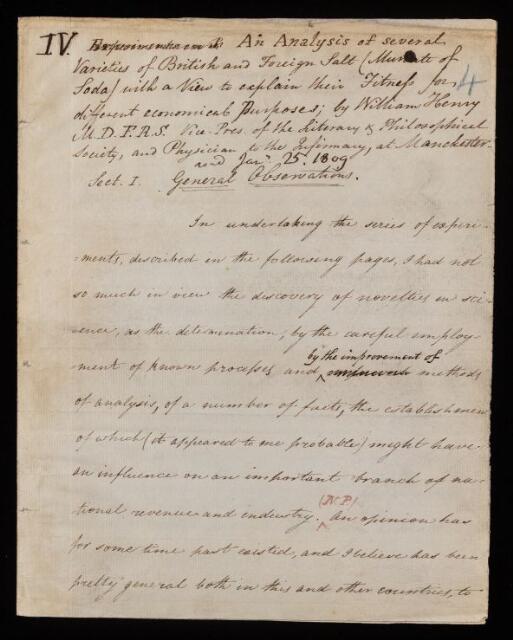 IV. Experiments on the An Analysis of several
Varieties of British and Foreign Salt (Muriate of
Soda) with a View to explain their Fitness for 4
different economical Purposes; by William Henry
M.D. F.R.S. Vice-Pres. of the Literary & Philosophical
Society, and Physician to the Infirmary, at Manchester.
read Jan. 25. 1809
Sect. I. General Observations.
In undertaking the series of experi-
-ments, described in the following pages, I had not
so much in view the discovery of novelties in sci-
ence, as the determination, by the careful employ-
by the improvement of
ment of known processes and methods
of analysis, of a number of facts, the establishment
of which (it appeared to me probable) might have
an influence on an important branch of na-
(N.P.)
tional revenue and industry. An opinion has
for some time past existed, and I believe has been
pretty general both in this and other countries, to